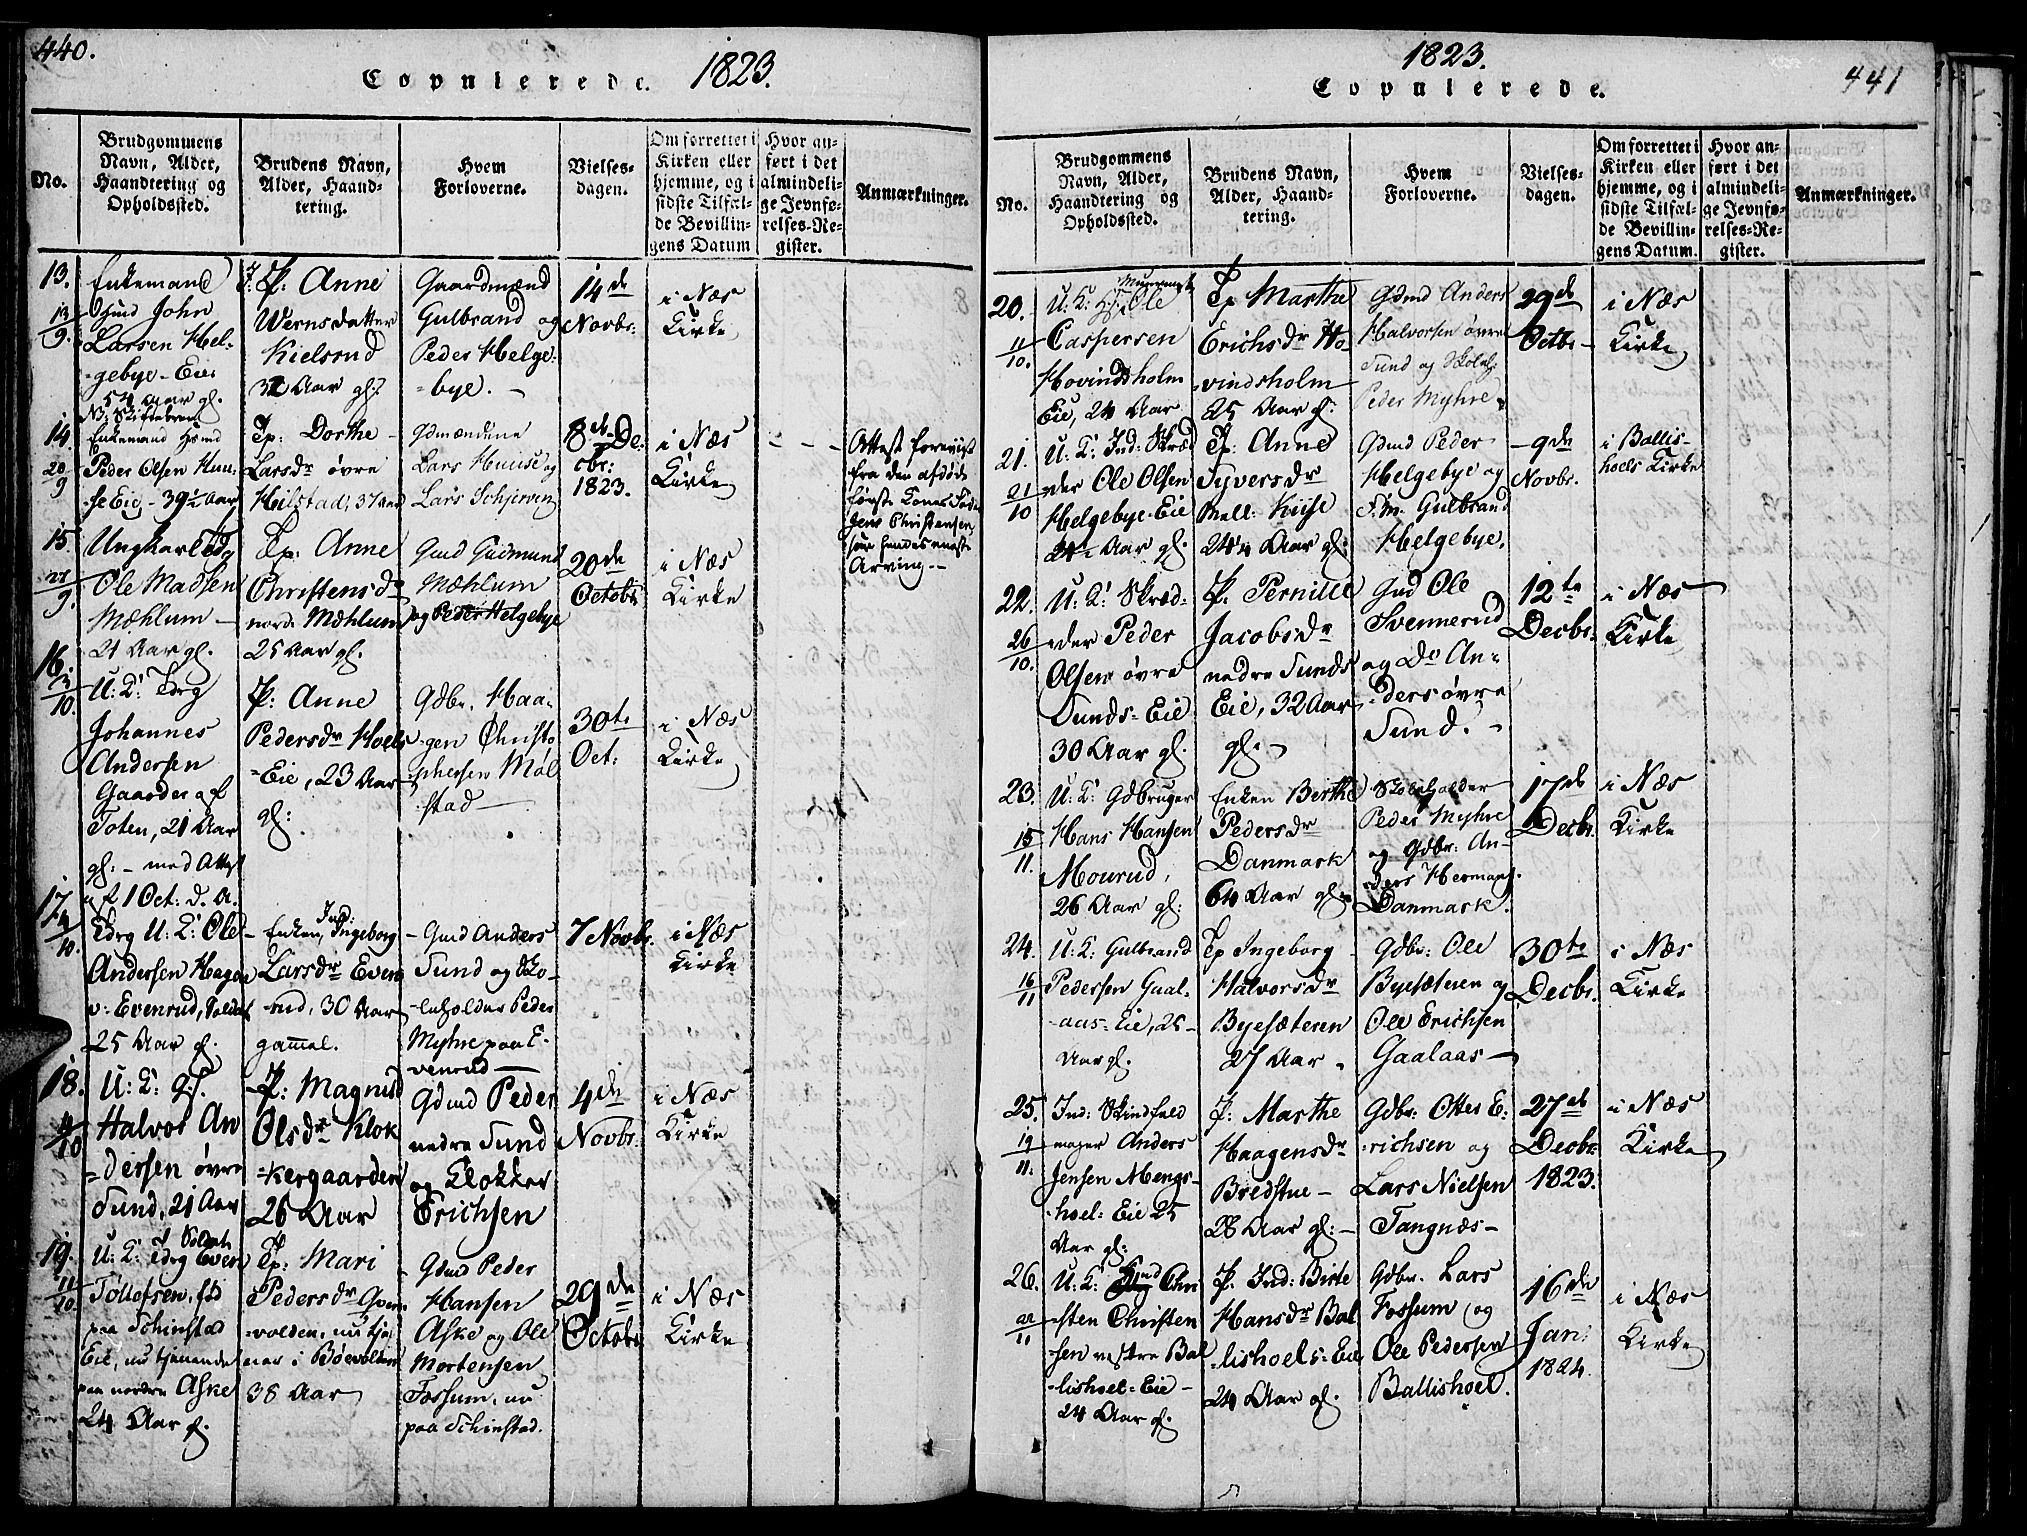 440.
Copulerede. 1823.
No.
Brudgommens
Navn, Alder,
Haandtering og
Opholdssted.
Brudens Navn,
Alder, Haand-
tering.
Hvem
Forloverne.
Vielses-
dagen.
Om forrettet i
Kirken eller
hjemme, og i
sidste Tilfæl-
de Bevillin-
gens Datum
Hvor an-
ført i det
almindeli-
ge Jevnfø-
relses-Re-
gister.
Anmærkninger.
13.
13/9.
Enkemand
John
Larsen Hel-
gebye-Eie
54 Aar gl.
P: Anne
Wernsdatter
Kielsrud
Aar gl:
Gaardmænd
Gulbrand og
Peder Helge-
bye.
14de
Novbr:
i Næs
Kirke
14.
20/9
Enkemand
Peder Olsen Huu-
se Eie - 39½ Aar
P: Dorthe
Larsdr øvre
Hilstad, 37 Aar
Gdmændene
Lars Huuse og
Lars Schjerven
8de De-
cbr:
1823.
i Næs
Kirke
Attest foreviist
fra den afdøde
første Kones
Jens Christensen,
som hendes eneste
Arving.
15.
27/9.
Ungkarl
Ole Madsen
Mæhlum
21 Aar gl.
P: Anne
Christensdr
nord: Mæhlum
25 Aar gl.
Gmd Gudmund
Mæhlum
og Peder Helgebye
20de
Octobr
i Næs
Kirke
16.
3/10.
U: K:
Johannes
Andersen
Gaarder af
Toten, 21 Aar
gl: - med Attest
af 1 Oct: d. A.
P: Anne
Pedersdr Hoels
Eie, 23 Aar
gl:
Gdbr. Haa-
gen Christo-
phersen Mæl-
stad
30te
Oct:
i Næs
Kirke
17.
4/10.
U: K: Ole
Andersen Hagen
v: Evenrud, Soldat
25 Aar gl.
Enken, Ind: Ingeborg
Larsdr Even-
rud, 30 Aar
gammel.
Gmd Anders
Sund og Sko-
leholder Peder
Myhre paa E-
venrud
7 Novbr.
i Næs
Kirke
18.
4/10
U: K:
Halvor An-
dersen øvre
Sund, 21 Aar
P: Magnild
Olsdr Klok-
kergaarden
26 Aar
Gdmd Peder
nedre Sund
og Klokker
Erichsen
4de
Novbr.
i Næs
Kirke
19.
11/10.
U: K: Soldat Even
Tollefsen, fød
paa Schinstad
Eie, nu tjenende
paa nordre Aske
24 Aar gl.
P: Mari
Pedersdr
volden, nu tje-
ner i Bøevolden
38 Aar
Gdmd Peder
Hansen
Aske og Ole
Mortensen
Fossum, nu
paa Schinstad.
29de
Octobr
i Næs
Kirke
1823.
441
Copulerede.
No.
Brudgommens
Navn, Alder,
Haandtering og
Opholdssted.
Brudens Navn,
Alder, Haand-
tering.
Hvem
Forloverne.
Vielses-
dagen.
Om forrettet i
Kirken eller
hjemme, og i
sidste Tilfæl-
de Bevillin-
gens Datum.
Hvor an-
ført i det
almindeli-
ge Jevnfø-
relses-Re-
gister.
Anmærkninger.
20.
11/10.
U: K: Ole
Caspersen
Hovindsholm
Eie, 24 Aar
P Marthe
Erichsdr Ho-
vindsholm
25 Aar gl:
Gdmd Anders
Halvorsen øvre
Sund og Skoleh:
Peder Myhre.
29de
Octbr
i Næs
Kirke
21.
21/10
U: K: Ind: Skræd-
der Ole Olsen
Helgebye-Eie
24 Aar gl.
P: Anne
Syversdr
Mell: Kiise
24¼ Aar gl:
Gdmd Peder
Helgebye og
Gulbrand
Helgebye.
9de
Novbr.
i Ballis-
hoels Kirke
22.
26/10.
U: K: Skræd-
der Peder
Olsen øvre
Sunds-Eie
30 Aar gl.
P. Pernille
Jacobsdr
nedre Sunds
Eie, 32 Aar
gl.
Gmd Ole
Svennerud
og Do An-
ders øvre
Sund.
12te
Decbr.
i Næs
Kirke
23.
15/11.
U: K: Gdbruger
Hans Hansen
Mourud,
26 Aar gl:
Enken Berthe
Pedersdr
Danmark
64 Aar gl.
Skoleholder
Peder Myhre
og Gdbr: An-
ders Hermans.
Danmark.
17de
Decbr.
i Næs
Kirke
24.
16/11
U: K: Gulbrand
Pedersen Gaal-
aas-Eie, 25
Aar gl.
P Ingeborg
Halvorsdr
Byesæteren
27 Aar
Gdbr: Ole
Byesæteren og
Ole Erichsen
Gaalaas
30te
Decbr.
i Næs
Kirke
25.
19/11.
Ind: Skindfeld-
mager Anders
Jensen Mengs-
hoel-Eie 25
Aar gl:
P: Marthe
Haagensdr
Bredstue
28 Aar gl:
Gdbr: Otter E-
richsen og
Lars Nielsen
Tangnæs
27de
Decbr
1823.
i Næs
Kirke
26.
22/11
U: K: Ind Chri-
sten Christen-
sen vestre Bal-
lishoel-Eie
24 Aar gl.
P. Ind: Birte
Hansdr Bal-
lishoels-Eie
24 Aar gl.
Gdbr. Lars
Fossum og
Ole Pedersen
Ballishoel.
16de
Jan:
1824.
i Næs
Kirke